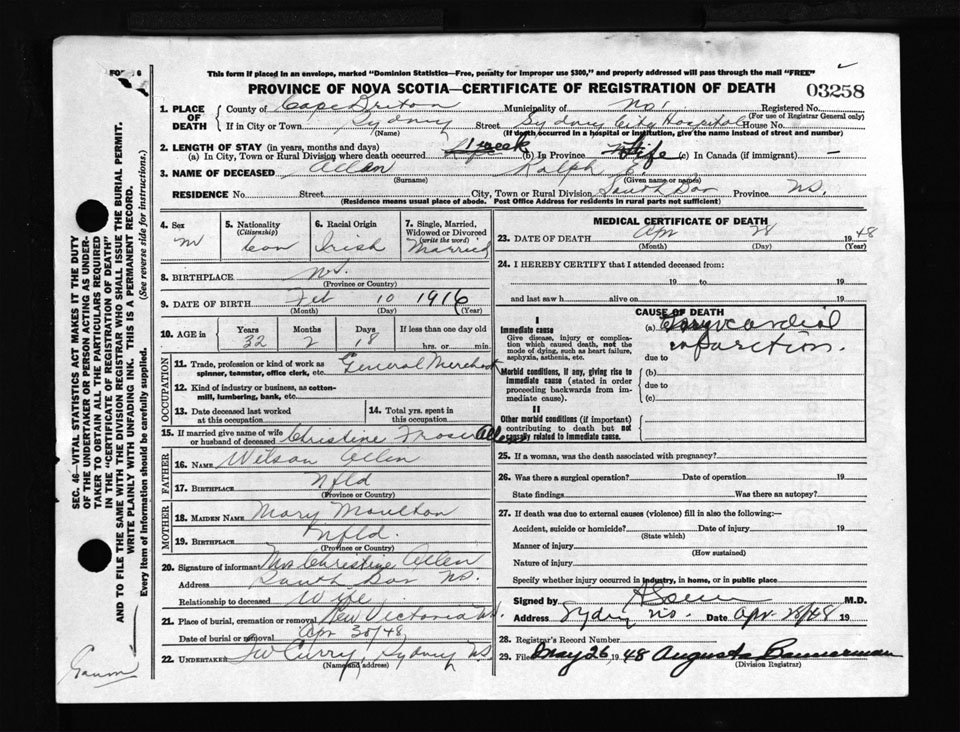 This form if placed in an envelope, marked "Dominion Statistics—Free, penalty for improper use $300," and properly addressed will pass through the mail "FREE"
PROVINCE OF NOVA SCOTIA—CERTIFICATE OF REGISTRATION OF DEATH
03258
1. PLACE OF DEATH County of Cape Breton Municipality of No 1 Registered No.
(For use of Registrar General only)
If in City or Town Sydney Street Sydney City Hospital House No.
(Name) (If death occurred in a hospital or institution, give the name instead of street and number)
2. LENGTH OF STAY (in years, months and days)
(a) In City, Town or Rural Division where death occurred 1 week (b) In Province Life (c) In Canada (if immigrant) —
3. NAME OF DECEASED Allan Ralph E.
(Surname) (Given name or names)
RESIDENCE No. Street City, Town or Rural Division South Bar Province NS.
(Residence means usual place of abode. Post Office Address for residents in rural parts not sufficient)
4. Sex m
5. Nationality (Citizenship) Can
6. Racial Origin Irish
7. Single, Married, Widowed or Divorced (write the word) Married
8. BIRTHPLACE N.S.
(Province or Country)
9. DATE OF BIRTH Feb 10 1916
(Month) (Day) (Year)
10. AGE in Years 32 Months 2 Days 18 If less than one day old hrs. or min.
OCCUPATION
11. Trade, profession or kind of work as spinner, teamster, office clerk, etc. General Merchant
12. Kind of industry or business, as cotton-mill, lumbering, bank, etc.
13. Date deceased last worked at this occupation
14. Total yrs. spent in this occupation
15. If married give name of wife or husband of deceased Christine Fraser Allen
FATHER
16. NAME Wilson Allen
17. BIRTHPLACE Nfld
(Province or Country)
MOTHER
18. MAIDEN NAME Mary Moulton
19. BIRTHPLACE Nfld.
(Province or Country)
20. Signature of informant Mrs Christine Allen
Address South Bar NS.
Relationship to deceased Wife
21. Place of burial, cremation or removal New Victoria NS.
Date of burial or removal Apr 30/48
22. UNDERTAKER TW Curry, Sydney NS
(Name and address)
MEDICAL CERTIFICATE OF DEATH
23. DATE OF DEATH Apr 28 1948
(Month) (Day) (Year)
24. I HEREBY CERTIFY that I attended deceased from:
19 to 19
and last saw h alive on 19
CAUSE OF DEATH
I
Immediate cause
Give disease, injury or complication which caused death, not the mode of dying, such as heart failure, asphyxia, asthenia, etc.
(a) Myocardial infarction.
due to
Morbid conditions, if any, giving rise to immediate cause (stated in order proceeding backwards from immediate cause).
(b)
due to
(c)
II
Other morbid conditions (if important) contributing to death but not causally related to immediate cause.
25. If a woman, was the death associated with pregnancy?
26. Was there a surgical operation? Date of operation 19
State findings Was there an autopsy?
27. If death was due to external causes (violence) fill in also the following:—
Accident, suicide or homicide? Date of injury 19
(State which)
Manner of injury
(How sustained)
Nature of injury
Specify whether injury occurred in industry, in home, or in public place
Signed by M.D.
Address Sydney NS. Date Apr 28/48 19
28. Registrar's Record Number
29. Filed May 26 1948 Augusta Bannerman
(Division Registrar)
SEC. 46—VITAL STATISTICS ACT MAKES IT THE DUTY
OF THE UNDERTAKER OR PERSON ACTING AS UNDERTAKER TO OBTAIN ALL THE PARTICULARS REQUIRED
IN THE "CERTIFICATE OF REGISTRATION OF DEATH"
AND TO FILE THE SAME WITH THE DIVISION REGISTRAR WHO SHALL ISSUE THE BURIAL PERMIT.
WRITE PLAINLY WITH UNFADING INK. THIS IS A PERMANENT RECORD.
Every item of Information should be carefully supplied. (See reverse side for instructions.)